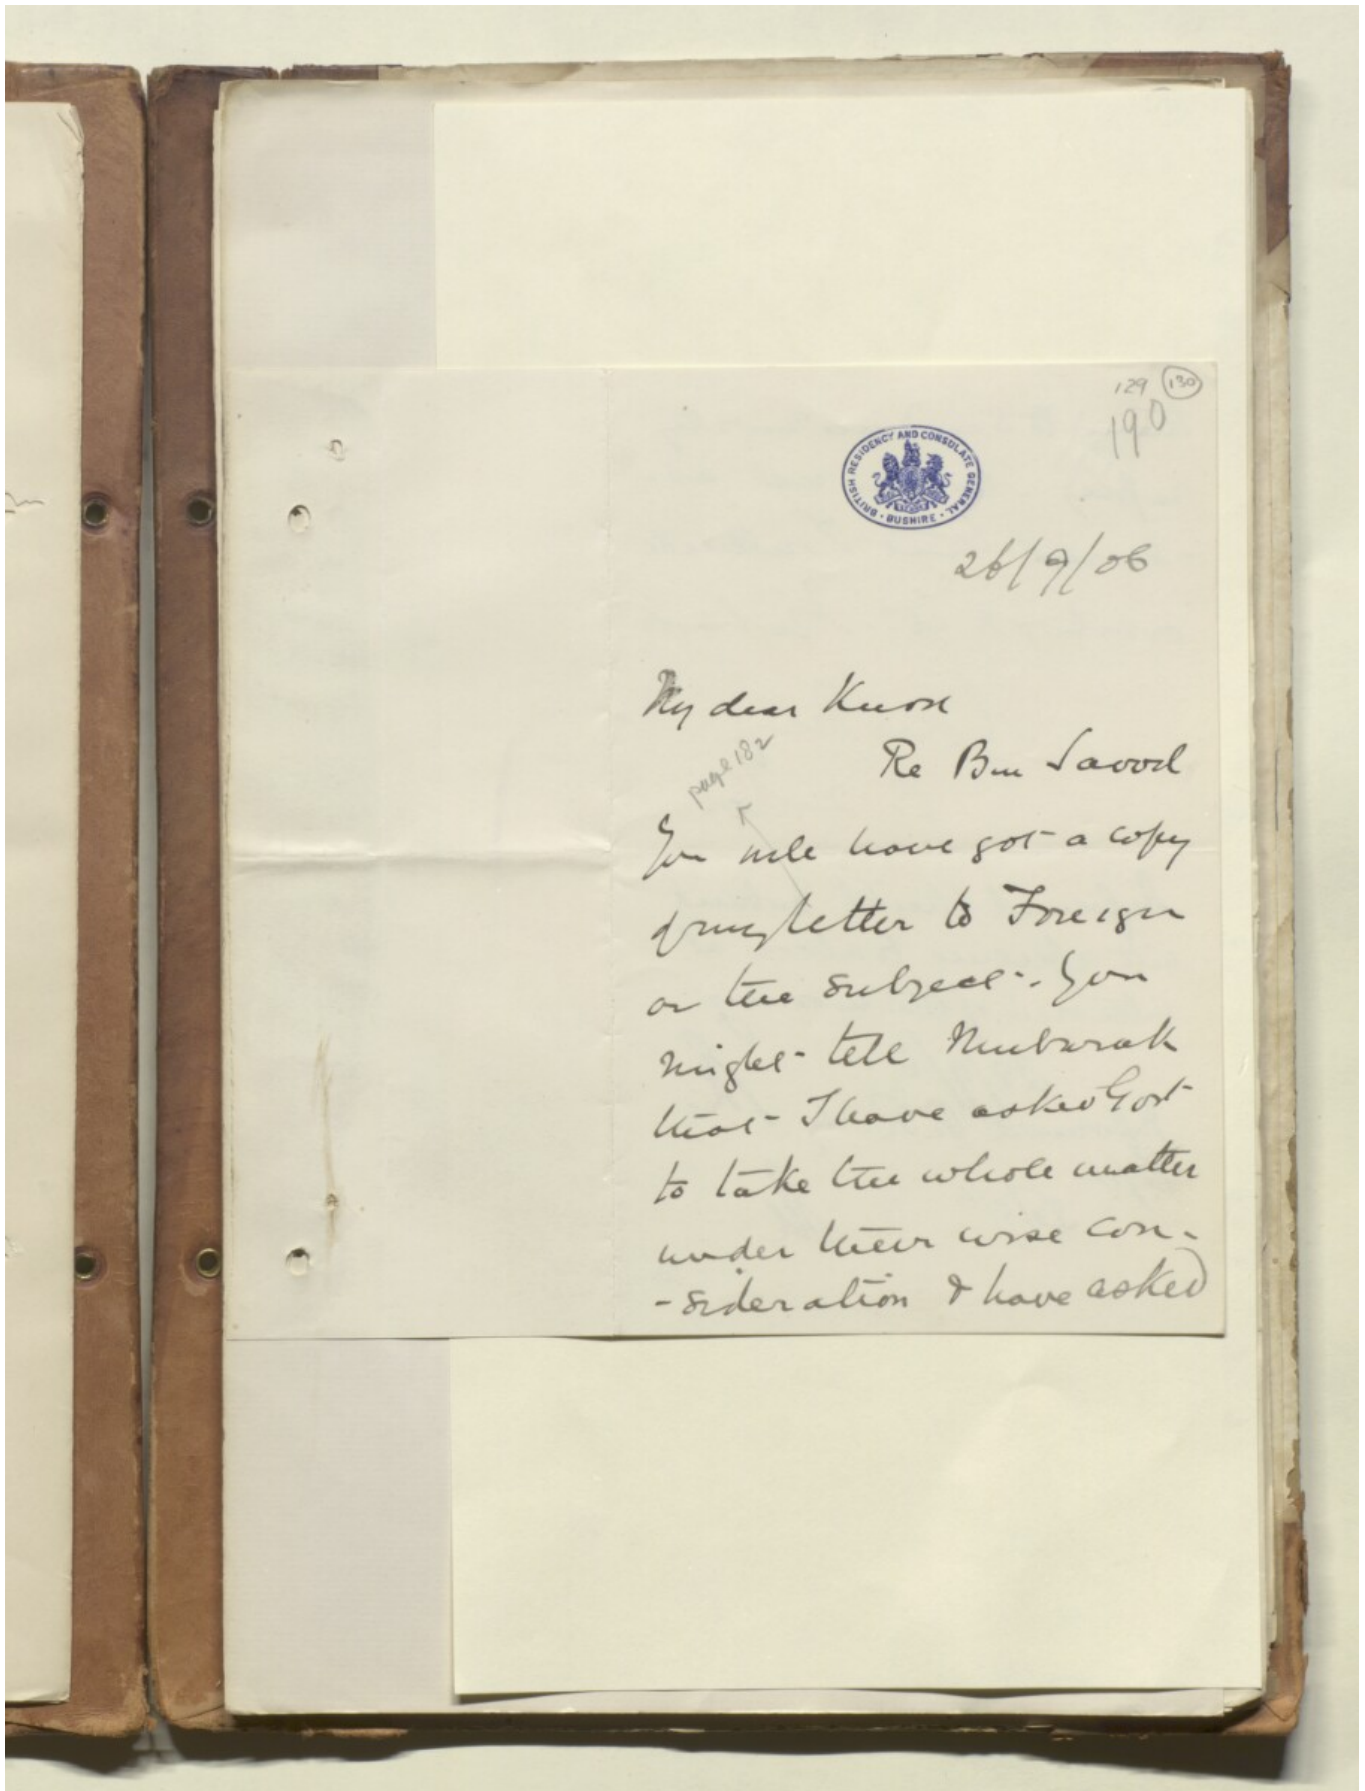 129 130
190
BRITISH RESIDENCY AND CONSULATE GENERAL
· BUSHIRE ·
26/9/06
My dear Knox
page 182
Re Bin Saood
You will have got a copy
of my letter to Foreign
on the subject. You
might tell Mubarak
that I have asked Govt
to take the whole matter
under their wise con-
-sideration & have asked